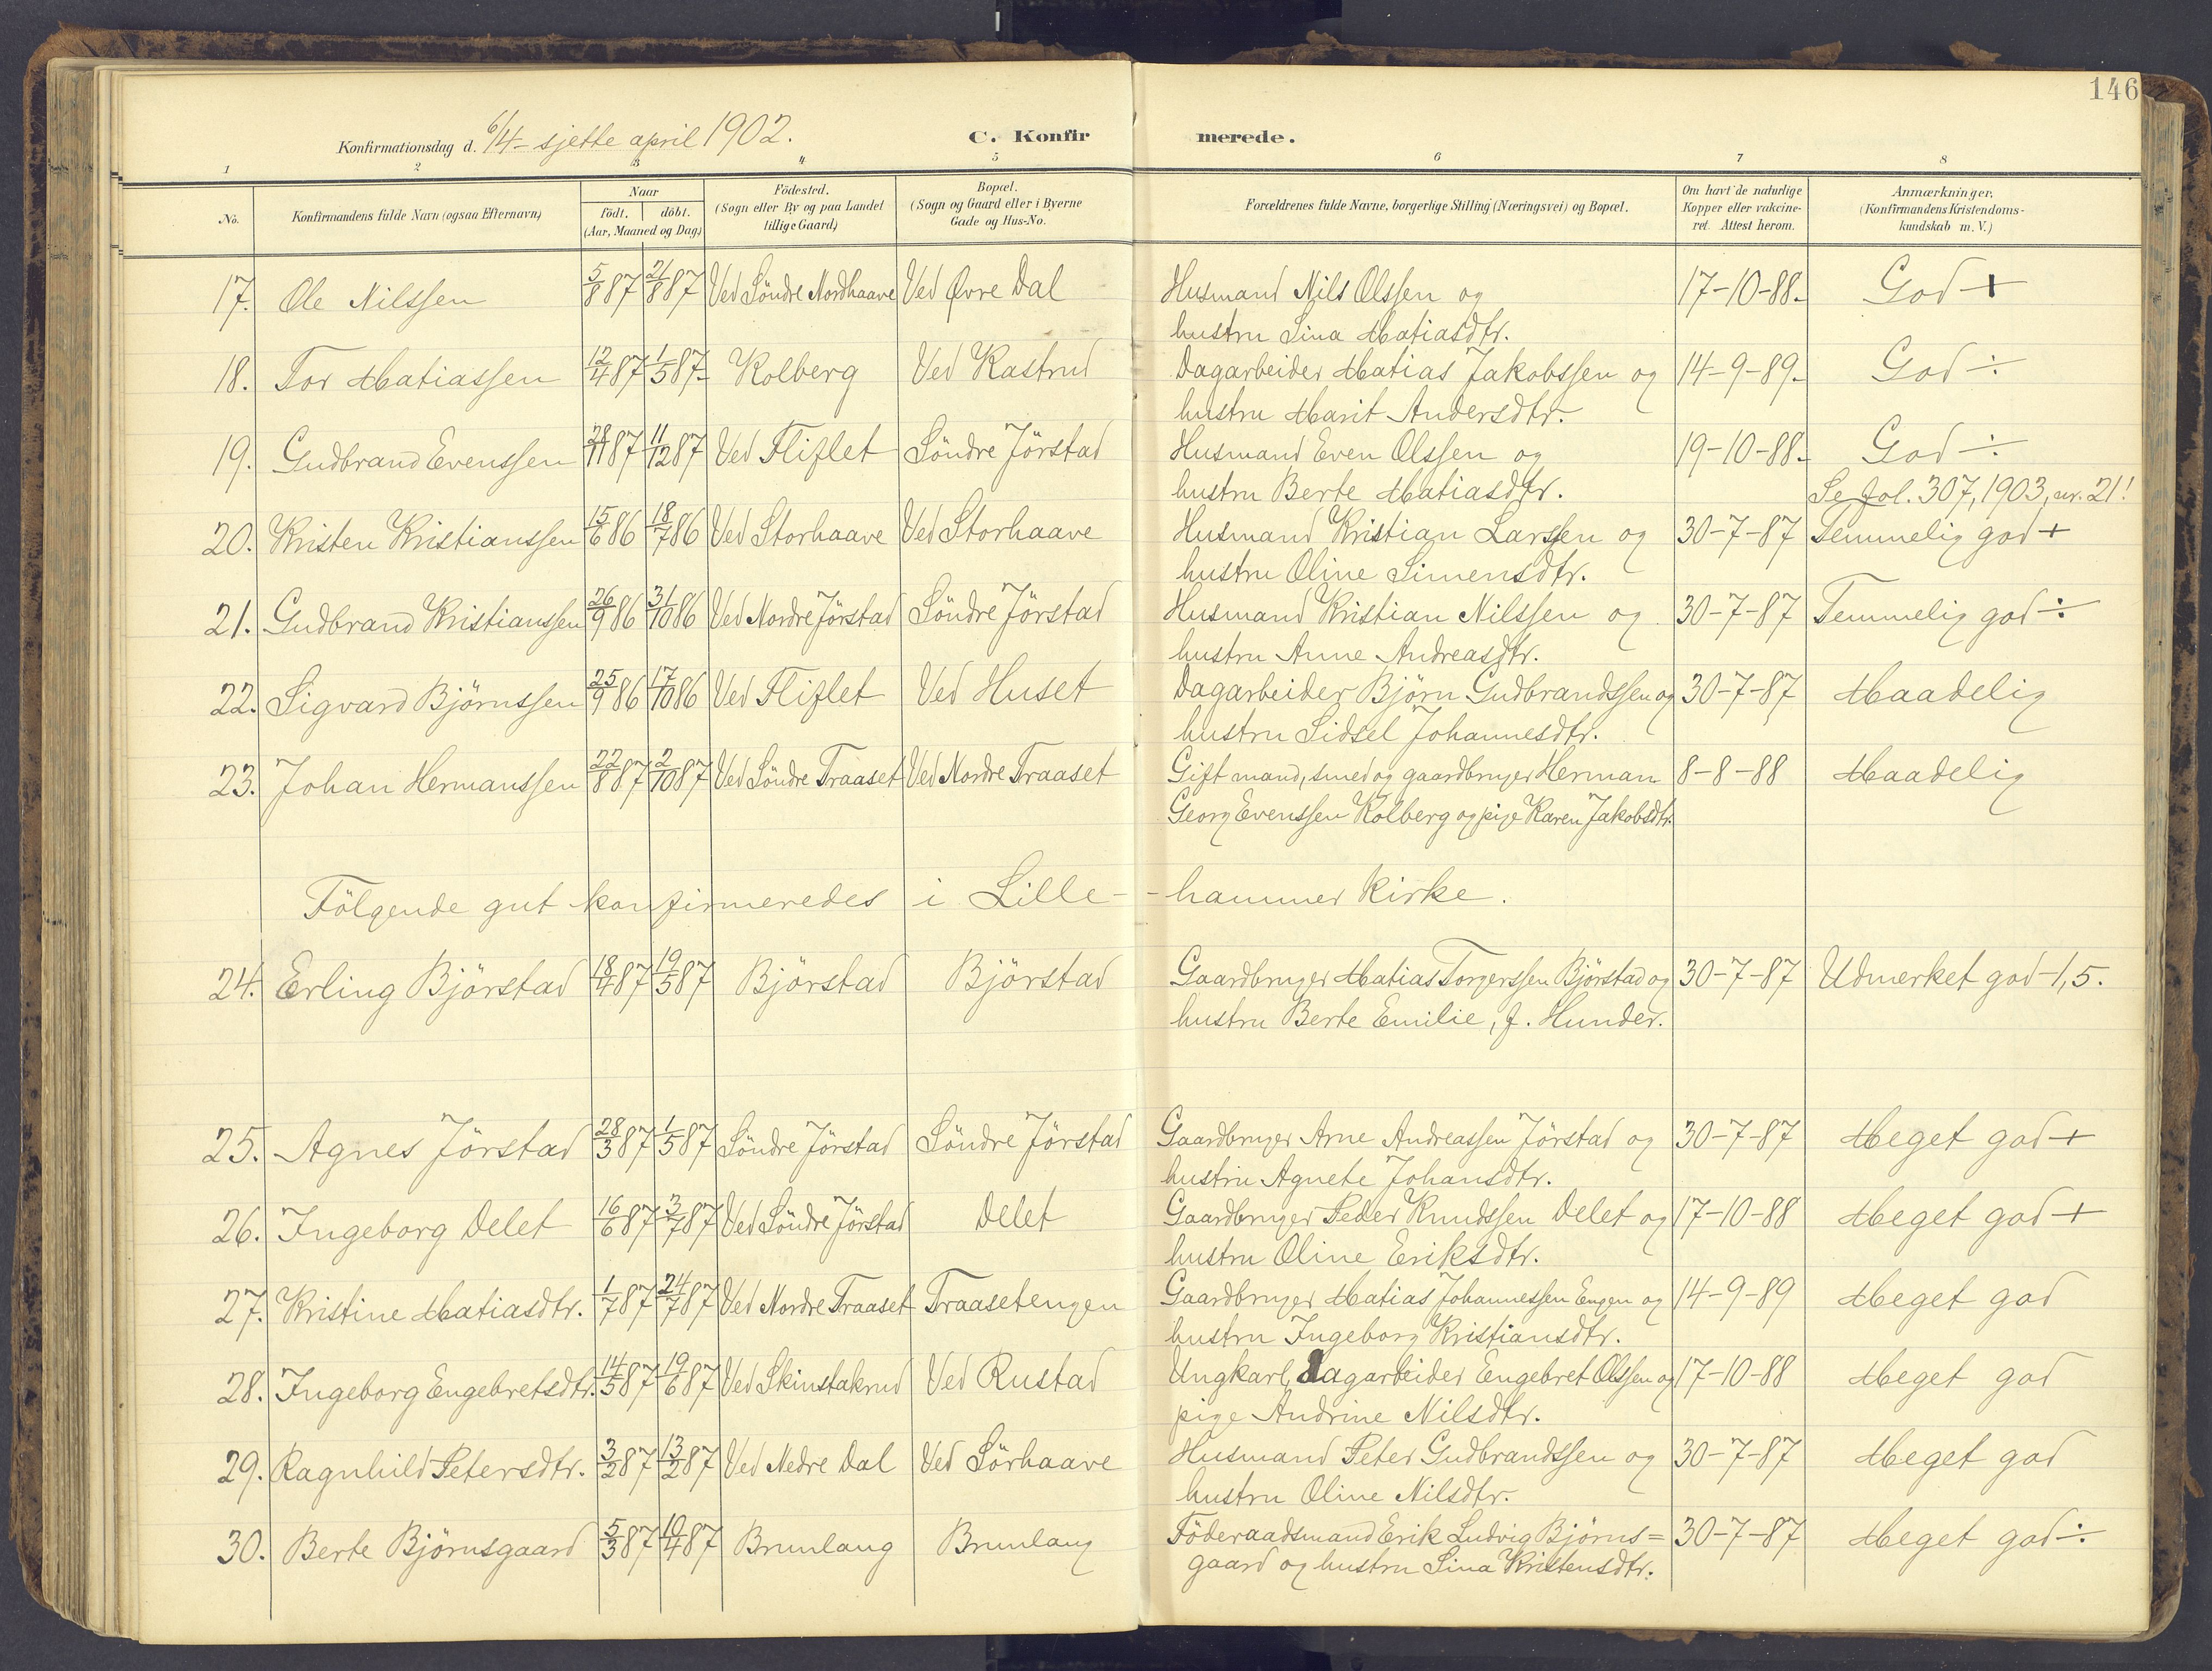 146
Konfirmationsdag d. 6/4 - sjette april 1902. C. Konfirmerede.
1 2 3 4 5 6 7 8
No. Konfirmandens fulde Navn (ogsaa Efternavn) Naar födt. döbt. (Aar, Maaned og Dag) Födested. (Sogn eller By og paa Landet tillige Gaard) Bopæl. (Sogn og Gaard eller i Byerne Gade og Hus-No. Forældrenes fulde Navne, borgerlige Stilling (Næringsvei) og Bopæl. Om havt de naturlige Kopper eller vakcineret. Attest herom. Anmærkninger. (Konfirmandens Kristendomskundskab m. V.)
17. Ole Nilssen 5/8 87 21/8 87 Ved Söndre Nordhaave Ved Øvre Dal Husmand Nils Olssen og 17-10-88. God +
hustru Lina Matiasdtr.
18. Tor Matiassen 12/4 87 1/5 87 Kolberg Ved Kastrud Dagarbeider Matias Jakobssen og 14-9-89. God ÷
hustru Marit Andersdtr.
19. Gudbrand Evenssen 28/11 87 11/12 87 Ved Fliflet Söndre Jörstad Husmand Even Olssen og 19-10-88. God ÷
hustru Berte Matiasdtr. Se fol. 307, 1903, nr. 21!
20. Kristen Kristianssen 15/6 86 18/7 86 Ved Storhaave Ved Storhaave Husmand Kristian Larssen og 30-7-87 Temmelig god +
hustru Oline Simensdtr.
21. Gudbrand Kristianssen 26/9 86 31/10 86 Ved Nordre Jörstad Söndre Jörstad Husmand Kristian Nilssen og 30-7-87 Temmelig god ÷
hustru Anne Andreasdtr.
22. Sigvard Björnssen 25/9 86 17/10 86 Ved Fliflet Ved Huset Dagarbeider Björn Gudbrandssen og 30-7-87 Maadelig
hustru Sidsel Johannesdtr.
23. Johan Hermanssen 22/8 87 2/10 87 Ved Söndre Traaset Ved Nordre Traaset Gift mand, smed og gaardbruger Herman 8-8-88 Maadelig
Georg Evenssen Kolberg og pige Karen Jakobsdtr.
Fölgende gut konfirmeredes i Lille- -hammer kirke.
24. Erling Björstad 18/4 87 19/5 87 Björstad Björstad Gaardbruger Matias Torgerssen Björstad og 30-7-87 Udmerket god - 1,5.
hustru Berte Emilie, f. Hunder.
25. Agnes Jörstad 28/3 87 1/5 87 Söndre Jörstad Söndre Jörstad Gaardbruger Arne Andreassen Jörstad og 30-7-87 Meget god +
hustru Agnete Johansdtr.
26. Ingeborg Delet 16/6 87 3/7 87 Ved Söndre Jörstad Delet Gaardbruger Peder Knudssen Delet og 17-10-88 Meget god +
hustru Oline Eriksdtr.
27. Kristine Matiasdtr. 1/7 87 24/7 87 Ved Nordre Traaset Traasetengen Gaardbruger Matias Johannessen Engen og 14-9-89 Meget god
hustru Ingeborg Kristiansdtr.
28. Ingeborg Engebretsdtr. 14/5 87 19/6 87 Ved Skinstakrud Ved Rustad Ungkarl, dagarbeider Engebret Olssen og 17-10-88 Meget god
pige Andrine Nilsdtr.
29. Ragnhild Petersdtr. 3/2 87 13/2 87 Ved Nedre Dal Ved Sörhaave Husmand Peter Gudbrandssen og 30-7-87 Meget god
hustru Oline Nilsdtr.
30. Berte Björnsgaard 5/3 87 10/4 87 Brunlaug Brunlaug Föderaadsmand Erik Ludvig Björns= 30-7-87 Meget god ÷
gaard og hustru Lina Kristensdtr.